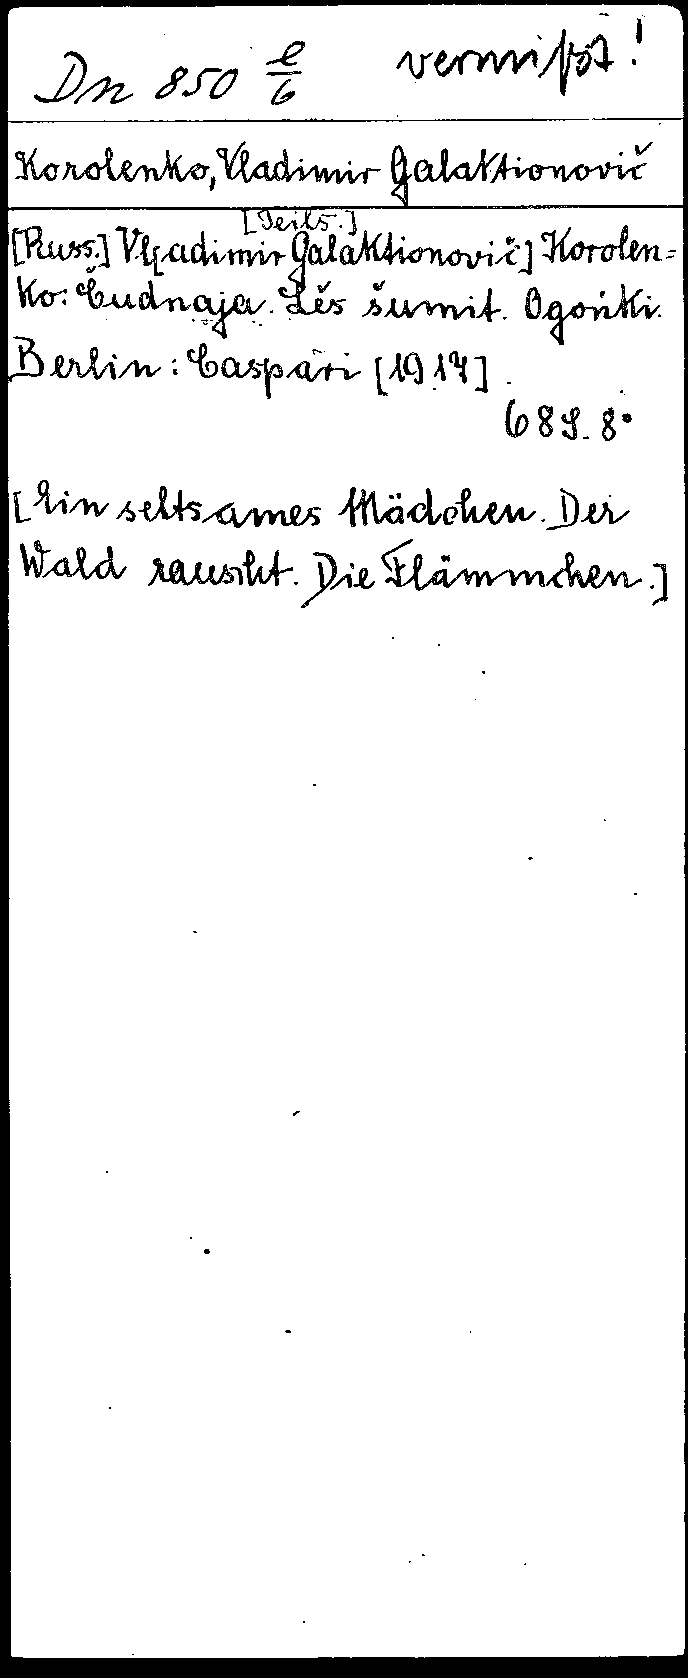 Dn 850 e/6 vermißt!
Korolenko, Vladimir Galaktionovič
[Teils.]
[Russ.] Vl[adimir Galaktionovič] Korolen=
ko: Čudnaja. Lěs šumit. Ogońki.
Berlin: Caspari [1917]
68 S. 8°
[Ein seltsames Mädchen. Der
Wald rauscht. Die Flämmchen.]